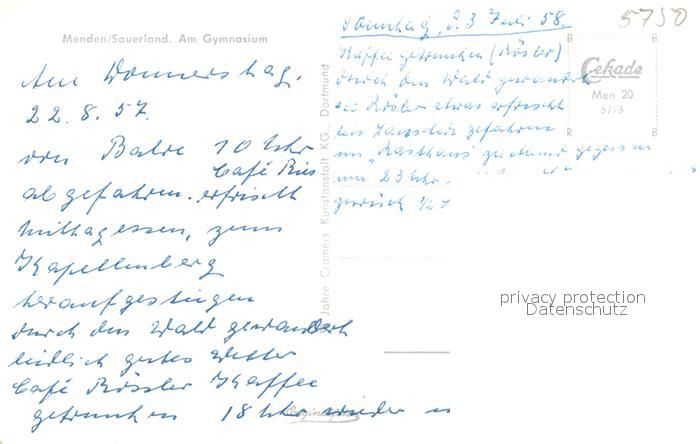 Menden/Sauerland. Am Gymnasium
Am Donnerstag.
22.8.57.
von Balve 10 Uhr
Café Rös
abgefahren. erfrischt
Mittagessen, zum
Kapellenberg
heraufgestiegen
durch den Wald gewandert
leidlich gutes Wetter
Café Rössler Kaffee
getrunken 18 Uhr wieder
Jahre Cramers Kunstanstalt KG., Dortmund
5750
Sonntag, 3 Juli 58.
Kaffee getrunken (Rösler)
durch den Wald gewandert
bei Rösler etwas erfrischt
bis gefahren
im "Rasthaus" zu Abend gegessen
um 23 Uhr.
zurück
Cekade
Men 20
5773
privacy protection
Datenschutz